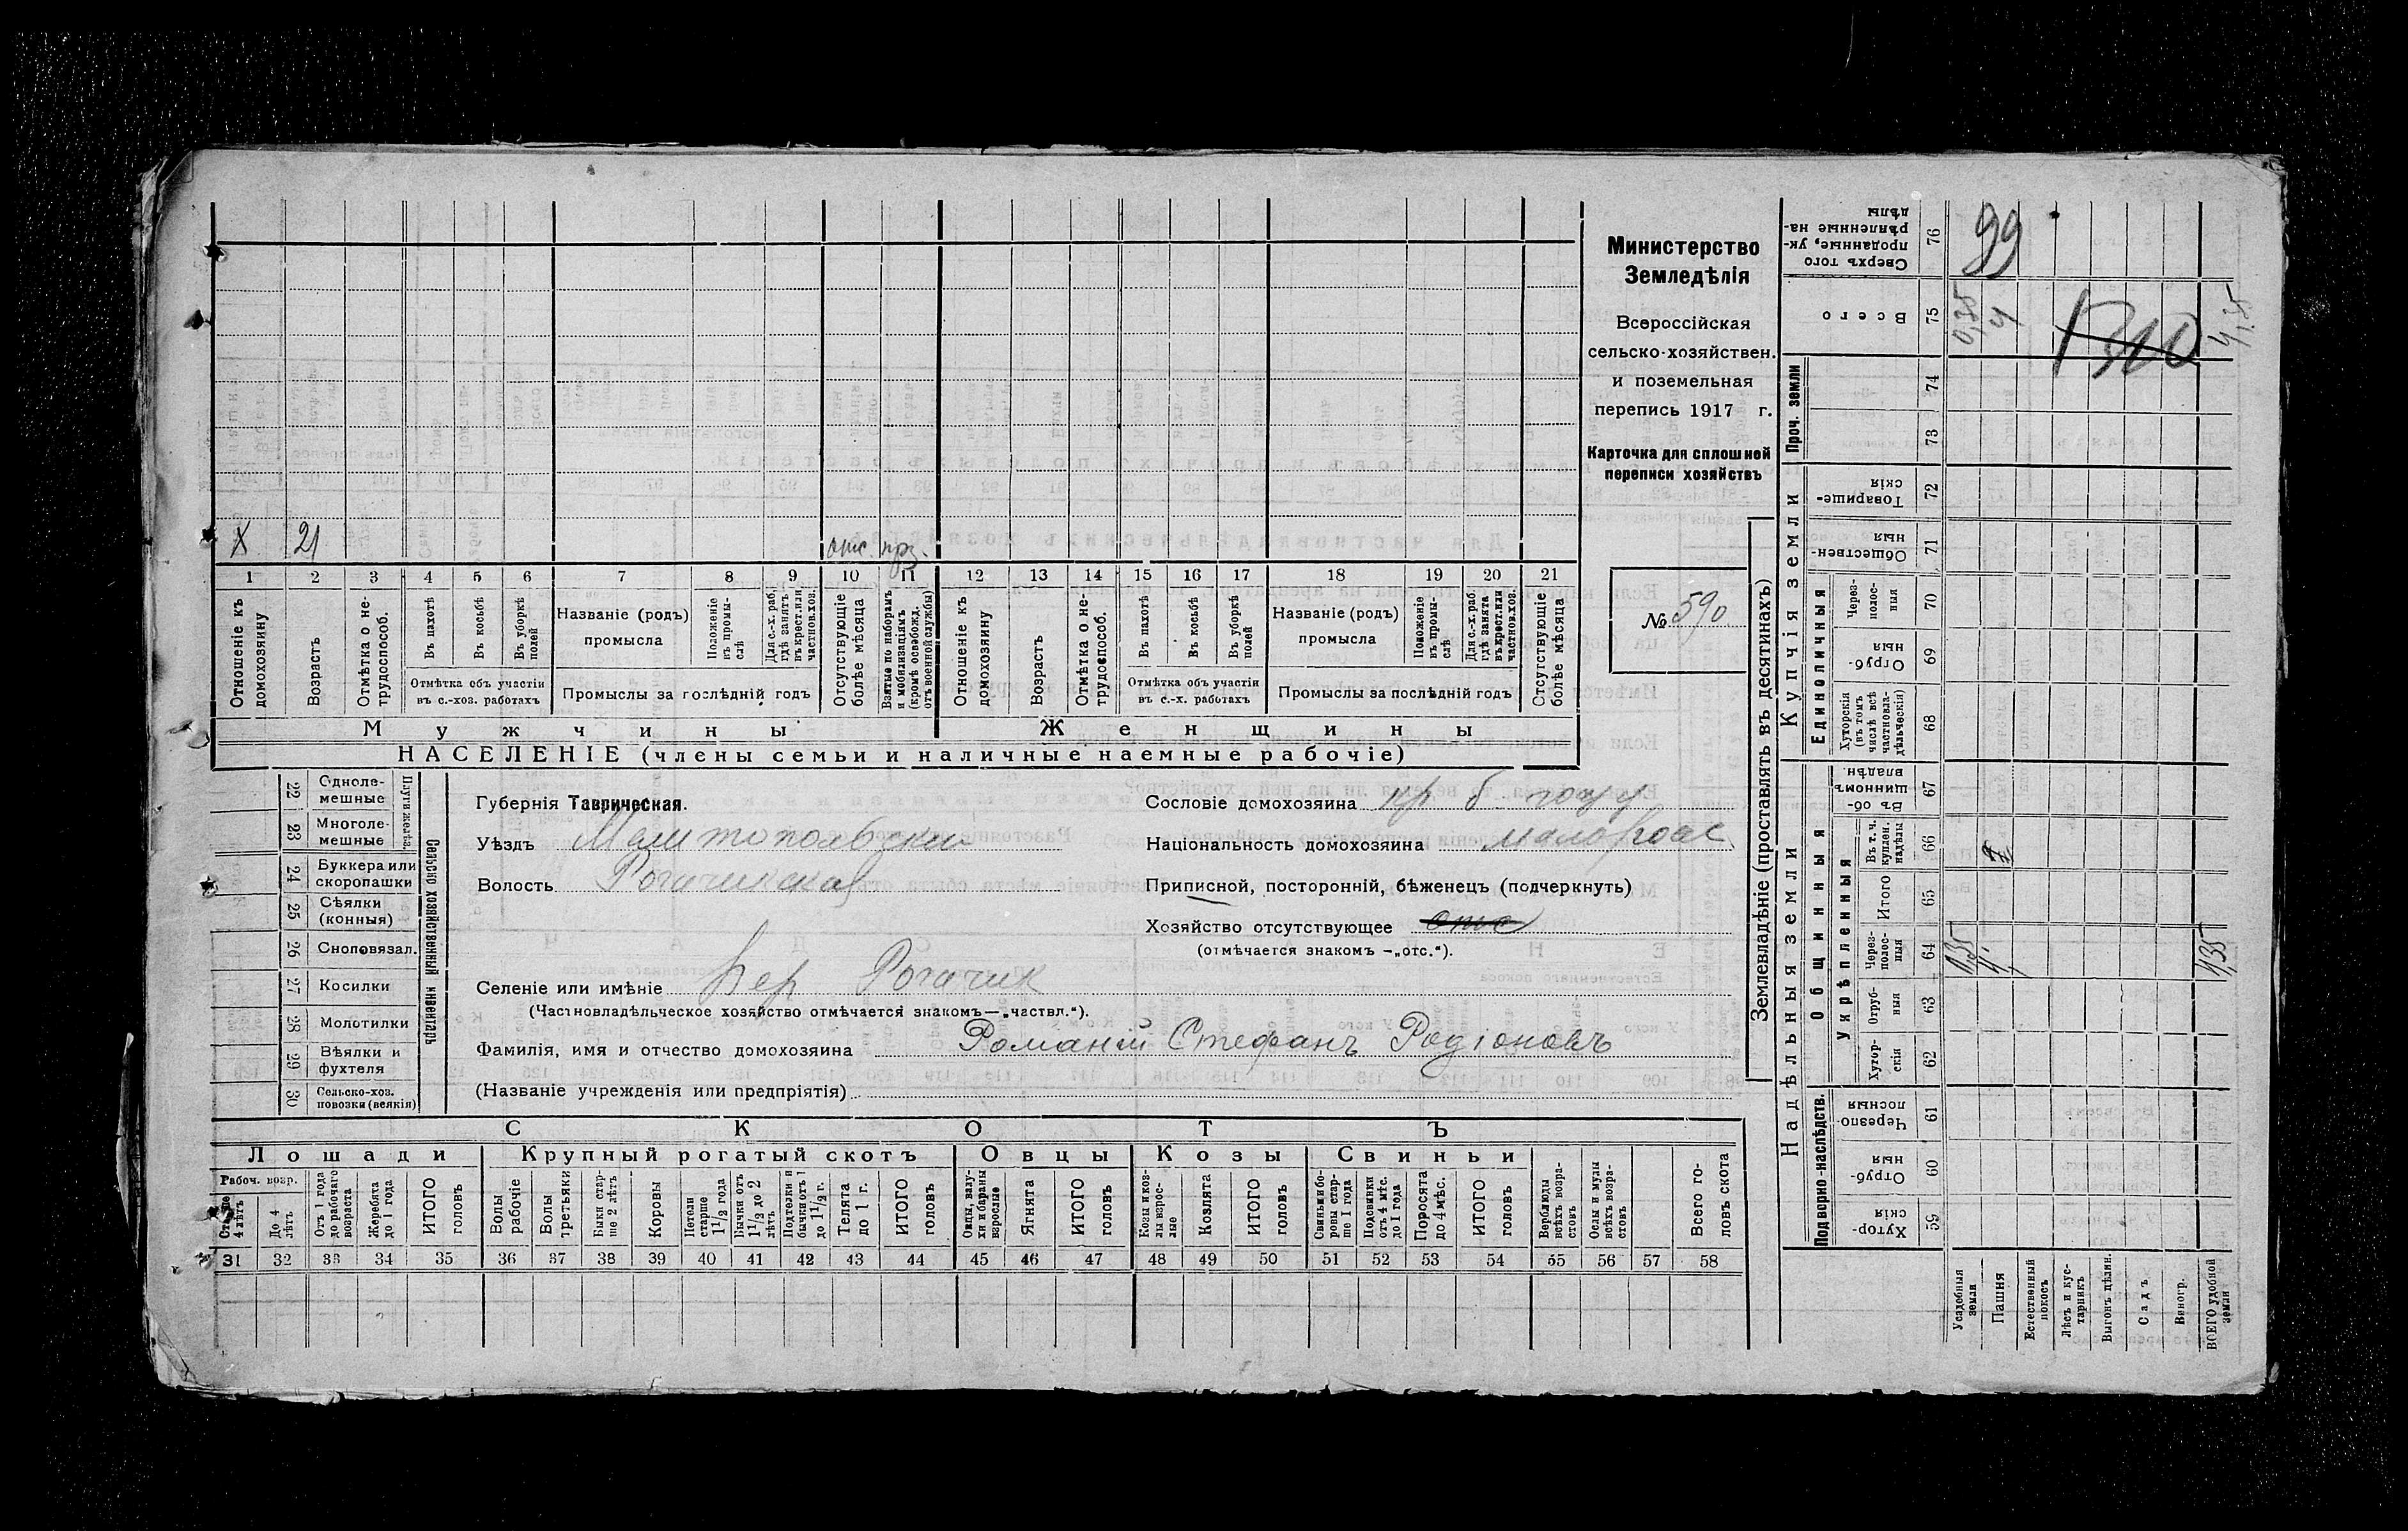 Министерство
Земледѣлія
Всероссійская
сельско-хозяйствен.
и поземельная
перепись 1917 г.
Карточка для сплошней
переписи хозяйствъ
№ 590
X 21 отс. прз.
1 2 3 4 5 6 7 8 9 10 11 12 13 14 15 16 17 18 19 20 21
Отношеніе къ домохозяину
Возрастъ
Отмѣтка о не-трудоспособ.
Въ пахотѣ
Въ косьбѣ
Въ уборкѣ полей
Отмѣтка объ участіи
въ с.-хоз. работахъ
Названіе (родъ)
промысла
Положеніе въ промы-слѣ
Для с.-х. раб. гдѣ занятъ въ крест. или частнов. хоз.
Промыслы за послѣдній годъ
Отсутствующіе болѣе мѣсяца
Взятые по наборамъ и мобилизаціямъ (кромѣ освобожд. отъ военной службы)
Отношеніе къ домохозяину
Возрастъ
Отмѣтка о не-трудоспособ.
Въ пахотѣ
Въ косьбѣ
Въ уборкѣ полей
Отмѣтка объ участіи
въ с.-х. работахъ
Названіе (родъ)
промысла
Положеніе въ промы-слѣ
Для с.-х. раб. гдѣ занята въ крест. или частнов. хоз.
Промыслы за послѣдній годъ
Отсутствующіе болѣе мѣсяца
Мужчины Женщины
НАСЕЛЕНІЕ (члены семьи и наличные наемные рабочіе)
Сельско хозяйственный инвентарь
Плуги желѣз.
22 Одноле-мешные
23 Многоле-мешные
24 Буккера или скоропашки
25 Сѣялки (конныя)
26 Сноповязал.
27 Косилки
28 Молотилки
29 Вѣялки и фухтеля
30 Сельско-хоз. повозки (всякія)
Губернія Таврическая.
Уѣздъ Мелитопольскій
Волость Рогачикская
Сословіе домохозяина кр б.
Національность домохозяина малорос
Приписной, посторонній, бѣженецъ (подчеркнуть)
Хозяйство отсутствующее отс
(отмѣчается знакомъ —„отс.“).
Селеніе или имѣніе Вер Рогачик
(Частновладѣльческое хозяйство отмѣчается знакомъ—„частвл.“).
Фамилія, имя и отчество домохозяина Романій Стефанъ Родіоновъ
(Названіе учрежденія или предпріятія)
СКОТЪ
Лошади Крупный рогатый скотъ Овцы Козы Свиньи
Рабоч. возр.
Старше 4 лѣтъ
До 4 лѣтъ
Отъ 1 года до рабочаго возраста
Жеребята до 1 года
ИТОГО головъ
Волы рабочіе
Волы третьяки
Быки стар-ше 2 лѣтъ
Коровы
Нетели старше 1 1/2 года
Бычки отъ 1 1/2 до 2 лѣтъ
Подтелки и бычки отъ 1 до 1 1/2 г.
Телята до 1 г.
ИТОГО головъ
Овцы, валу-хи и бараны взрослые
Ягнята
ИТОГО головъ
Козы и коз-лы взрос-лые
Козлята
ИТОГО головъ
Свиньи бо-ровы стар-ше 1 года
Подсвинки отъ 4 мѣс. до 1 года
Поросята до 4 мѣс.
ИТОГО головъ
Верблюды всѣхъ возра-стовъ
Ослы и мулы всѣхъ возра-стовъ
Всего го-ловъ скота
31 32 33 34 35 36 37 38 39 40 41 42 43 44 45 46 47 48 49 50 51 52 53 54 55 56 57 58
Землевладѣніе (проставлять въ десятинахъ)
Надѣльныя земли Купчія земли Проч. земли
Подворно-наслѣдств. Общинныя Единоличныя
Укрѣпленныя
76 Сверхъ того проданные, ук-рѣпленные на-дѣлы 99
75 Всего 0,35 4 4,35
1310
74
73
72 Товарище-скія
71 Обществен-ныя
70 Через-полос-ныя
69 Отруб-ныя
68 Хуторскія (въ томъ числѣ всѣ частновла-дѣльческія)
67 Въ об-щинномъ владѣн.
66 Въ т. ч. куплен. надѣлы
65 Итого
64 Через-полос-ныя 0,35 4 4,35
63 Отруб-ныя
62 Хутор-скія
61 Черезпо-лосныя
60 Отруб-ныя
59 Хутор-скія
Усадебныя земли
Пашня
Естественный покосъ
Лѣсъ и кус-тарникъ
Выгонъ цѣлин.
Садъ
Виногр.
ВСЕГО удобной земли